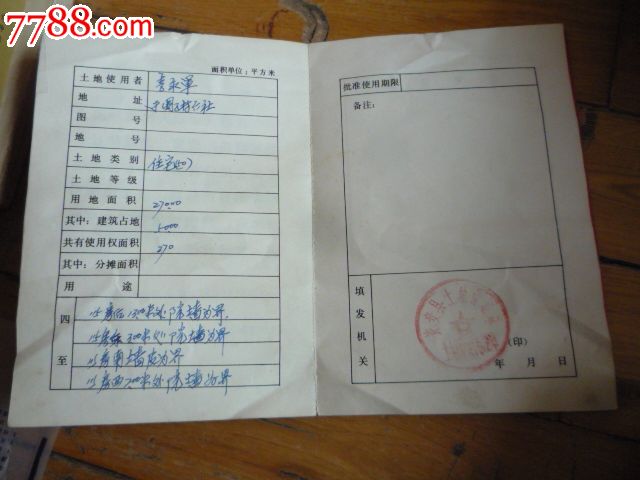 7788.com
面积单位：平方米
土地使用者 李永军
地址
图号
地号
土地类别 住宅(50)
土地等级
用地面积 270.00
其中：建筑占地
共有使用权面积 270
其中：分摊面积
用途
四至
以房后1.00米处院墙为界.
以房 3.00米处院墙为界
以房南墙皮为界
以房西2.00米处院墙为界
批准使用期限
备注：
填发机关
县土地
（印）
年 月 日